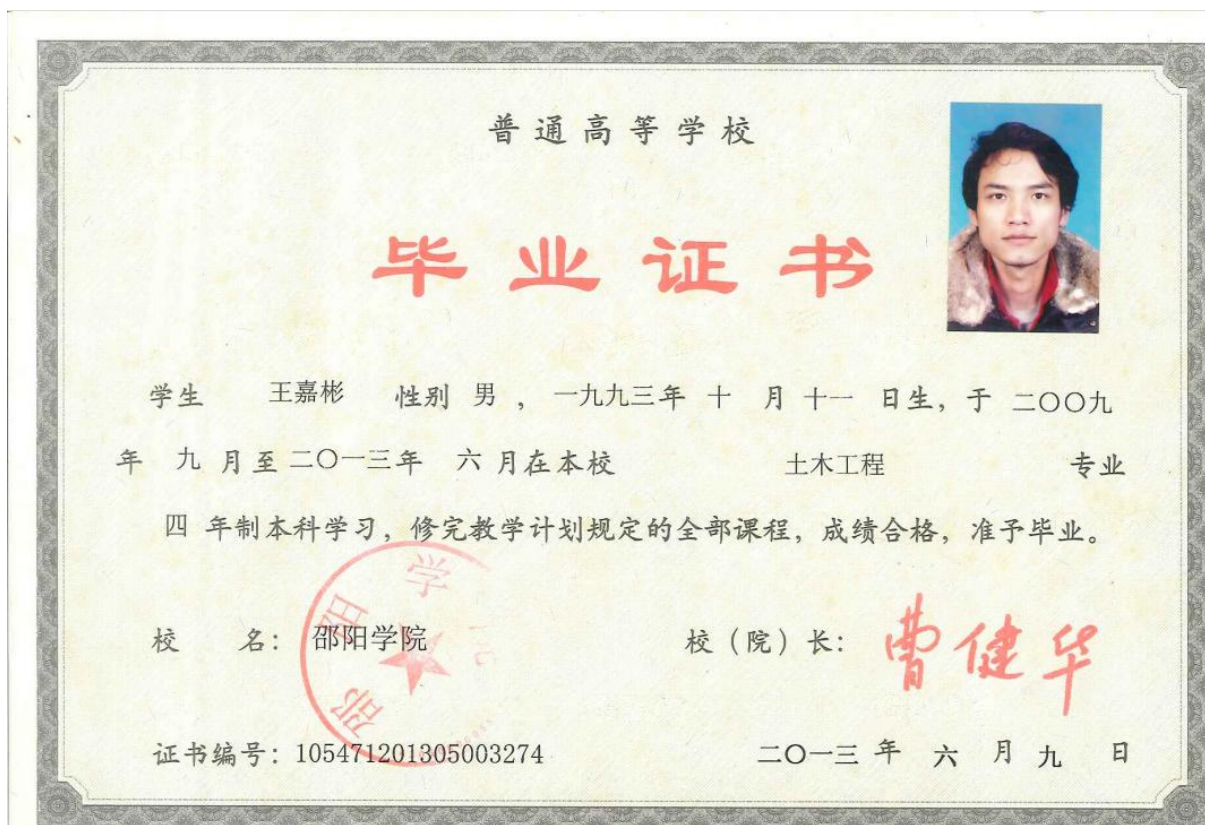 普通高等学校
毕业证书
学生 王嘉彬 性别 男 ，一九九三年 十 月 十一 日生，于 二〇〇九
年 九 月至 二〇一三年 六 月在本校 土木工程 专业
四 年制本科学习，修完教学计划规定的全部课程，成绩合格，准予毕业。
校 名： 邵阳学院 校（院）长： 曹健华
邵阳学
证书编号：105471201305003274 二〇一三 年 六 月 九 日